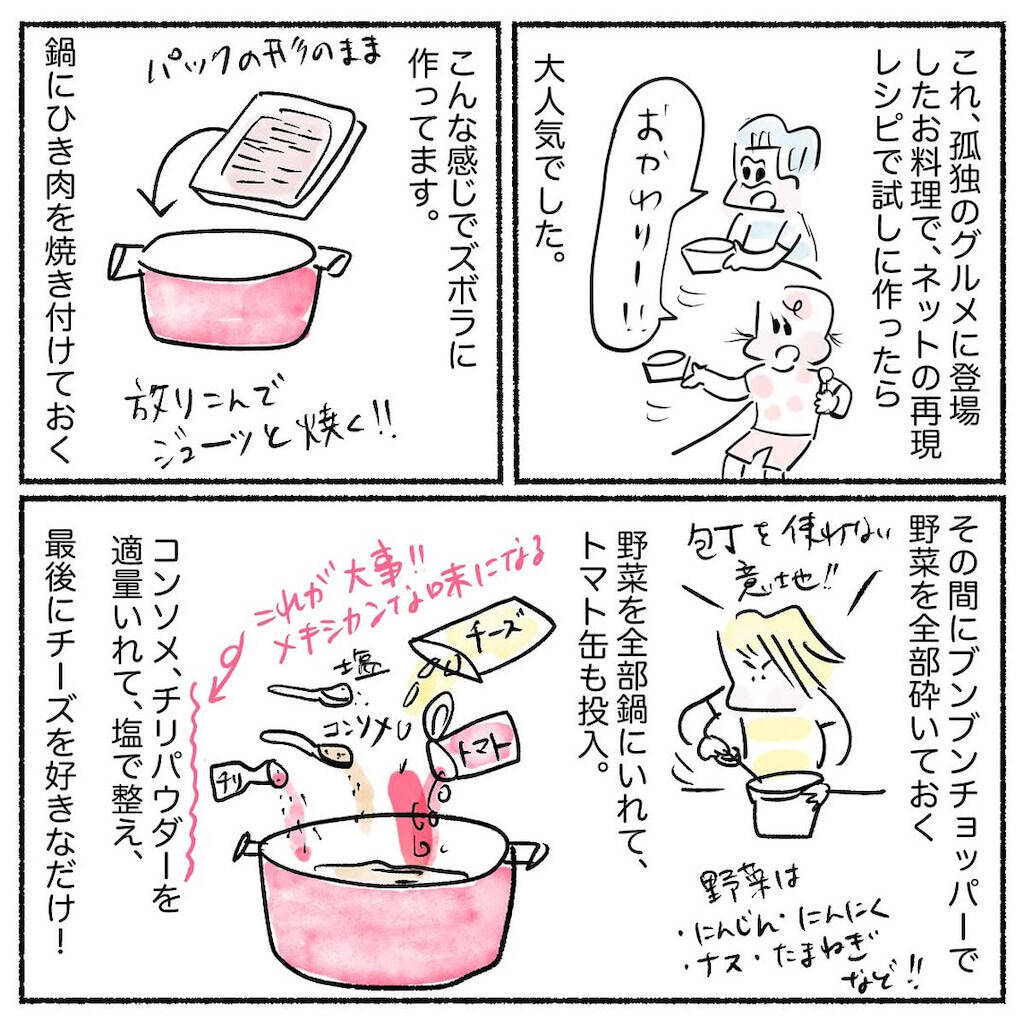 これ、孤独のグルメに登場
したお料理で、ネットの再現
レシピで試しに作ったら
おかわりー!!
大人気でした。
こんな感じでズボラに
作ってます。
パックの形のまま
鍋にひき肉を焼き付けておく
放りこんで
ジューッと焼く!!
その間にブンブンチョッパーで
野菜を全部砕いておく
包丁を使わない
意地!!
野菜は
・にんじん・にんにく
・ナス・たまねぎ
など!!
野菜を全部鍋にいれて、
トマト缶も投入。
チーズ
トマト
塩
コンソメ
チリ
これが大事!!
メキシカンな味になる
コンソメ、チリパウダーを
適量いれて、塩で整え、
最後にチーズを好きなだけ!